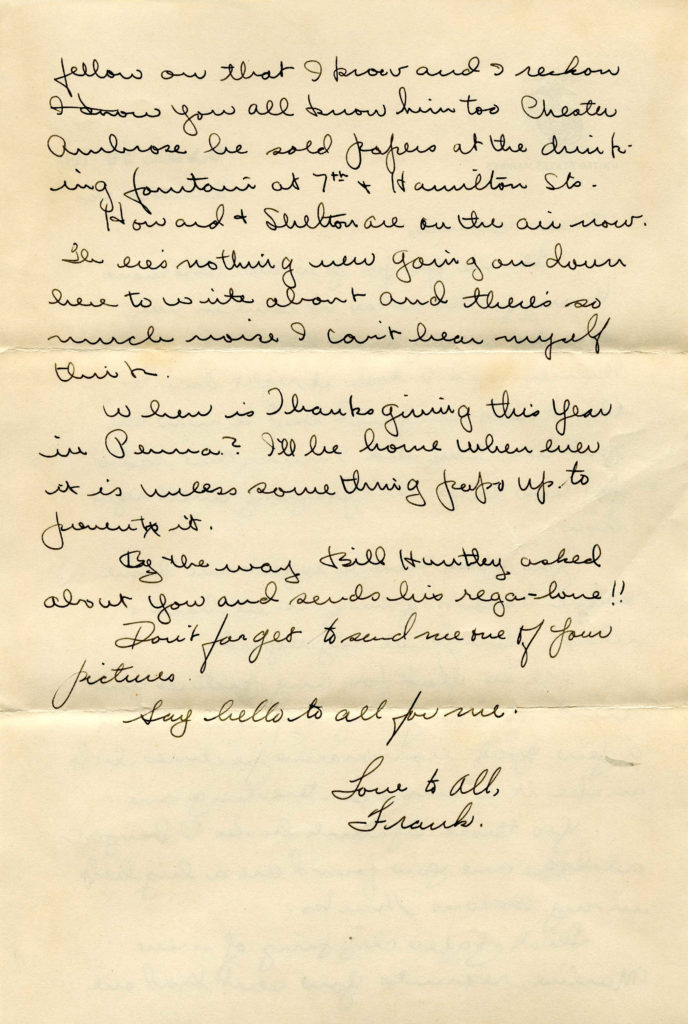 fellow on that I know and I reckon
I know you all know him too Chester
Ambrose he sold papers at the drink-
ing fountain at 7th + Hamilton Sts.
Howard + Shelton are on the air now.
There's nothing new going on down
here to write about and there's so
much noise I can't hear myself
think.
When is Thanksgiving this year
in Penna.? I'll be home when ever
it is unless something pops up to
prevent it.
By the way Bill Huntley asked
about you and sends his rega-
Don't forget to send me one of your
pictures.
Say hello to all for me.
Love to All,
Frank.